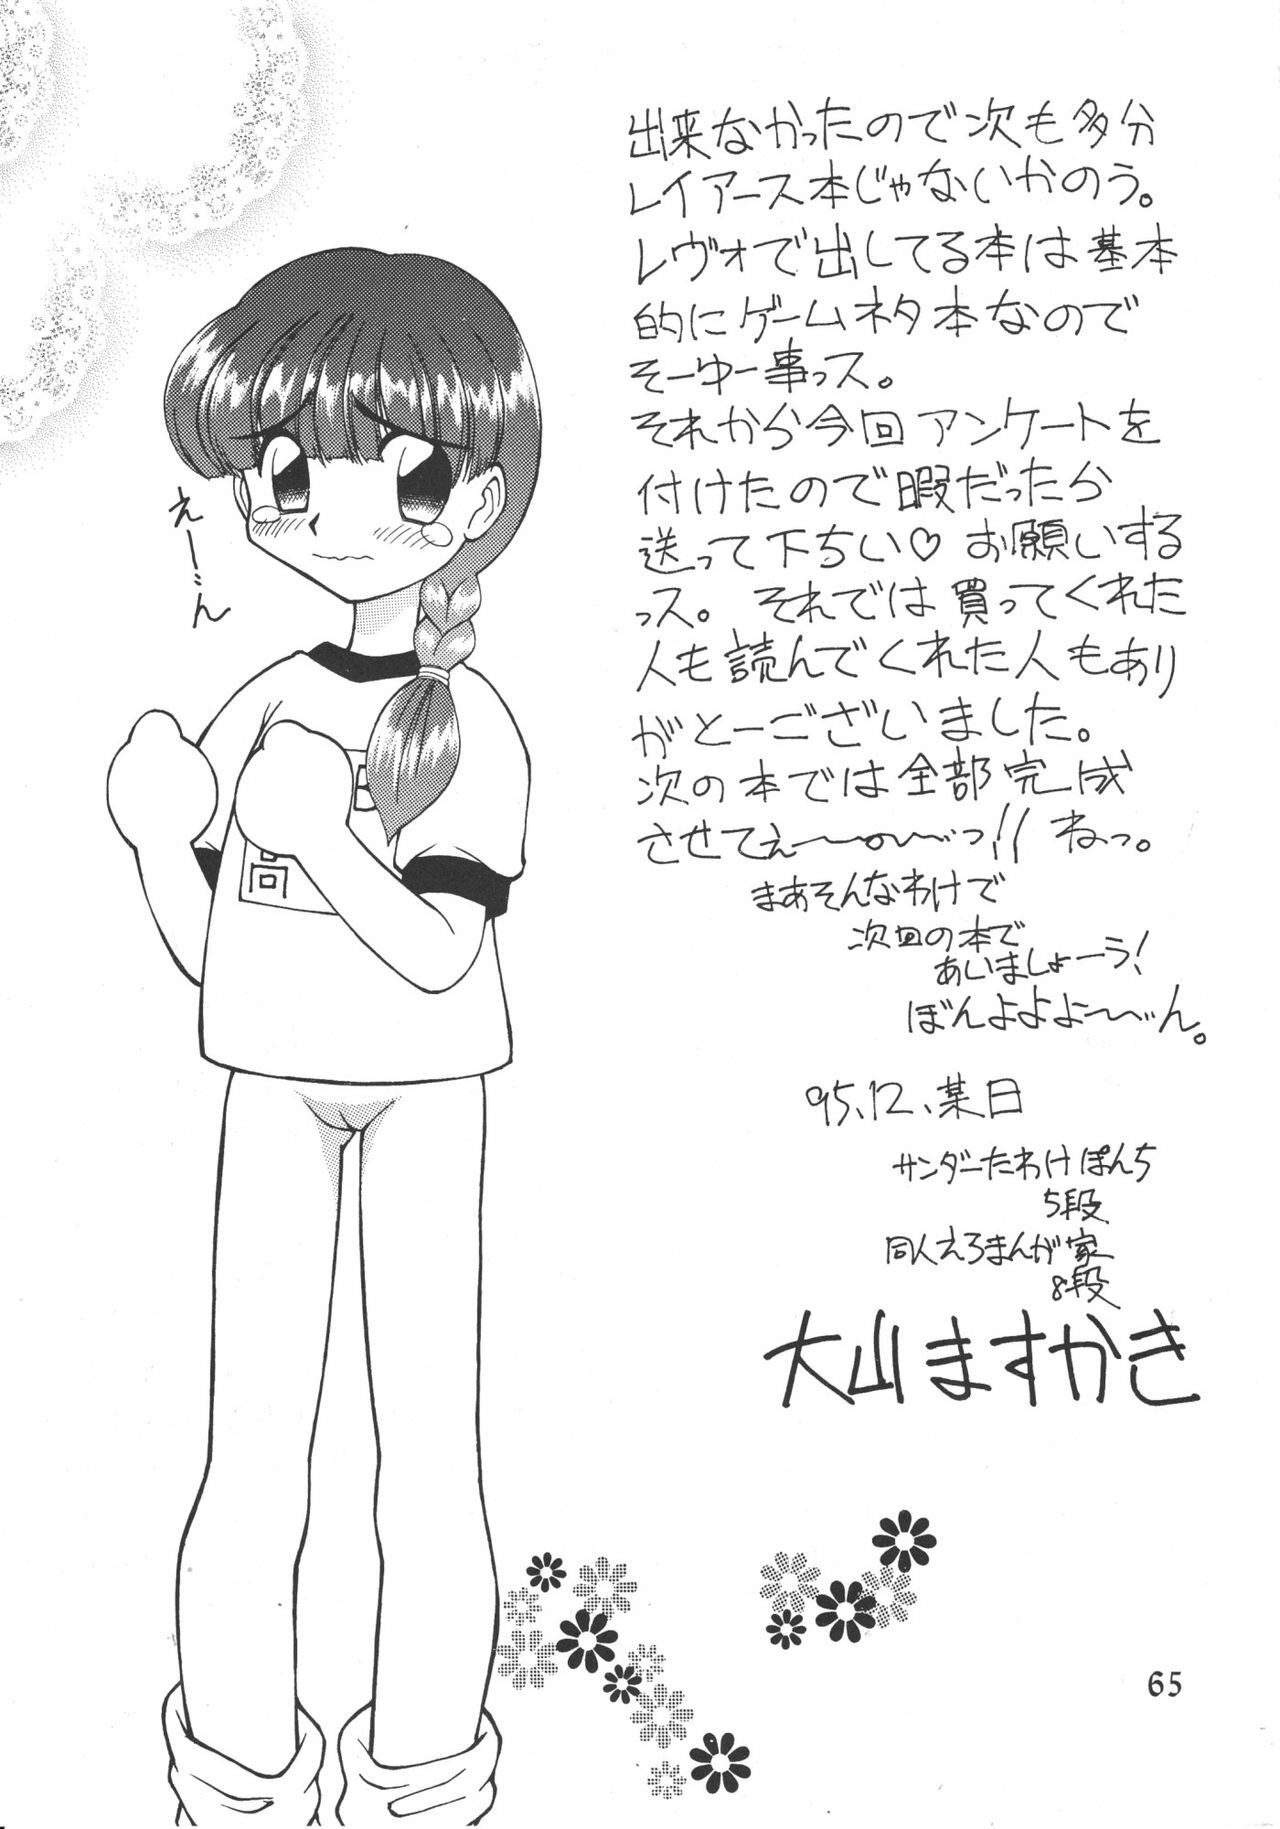 出来なかったので次も多分
レイアース本じゃないかのう。
レヴォで出してる本は基本
的にゲームネタ本なので
そーゆー事っス。
それから今回アンケートを
付けたので暇だったか
送って下ちい♡お願いする
っス。それでは買ってくれた
人も読んでくれた人もあり
がとーございました。
次の本では全部完成
させてぇ〜〜〜っ!!ねっ。
まあそんなわけで
次回の本で
あいましょーう!
ぼんよよよ〜〜ん。
えーーん
'95.12.某日
サンダーたわけぽんち
5段
同人えろまんが家
8段
大山ますかき
65